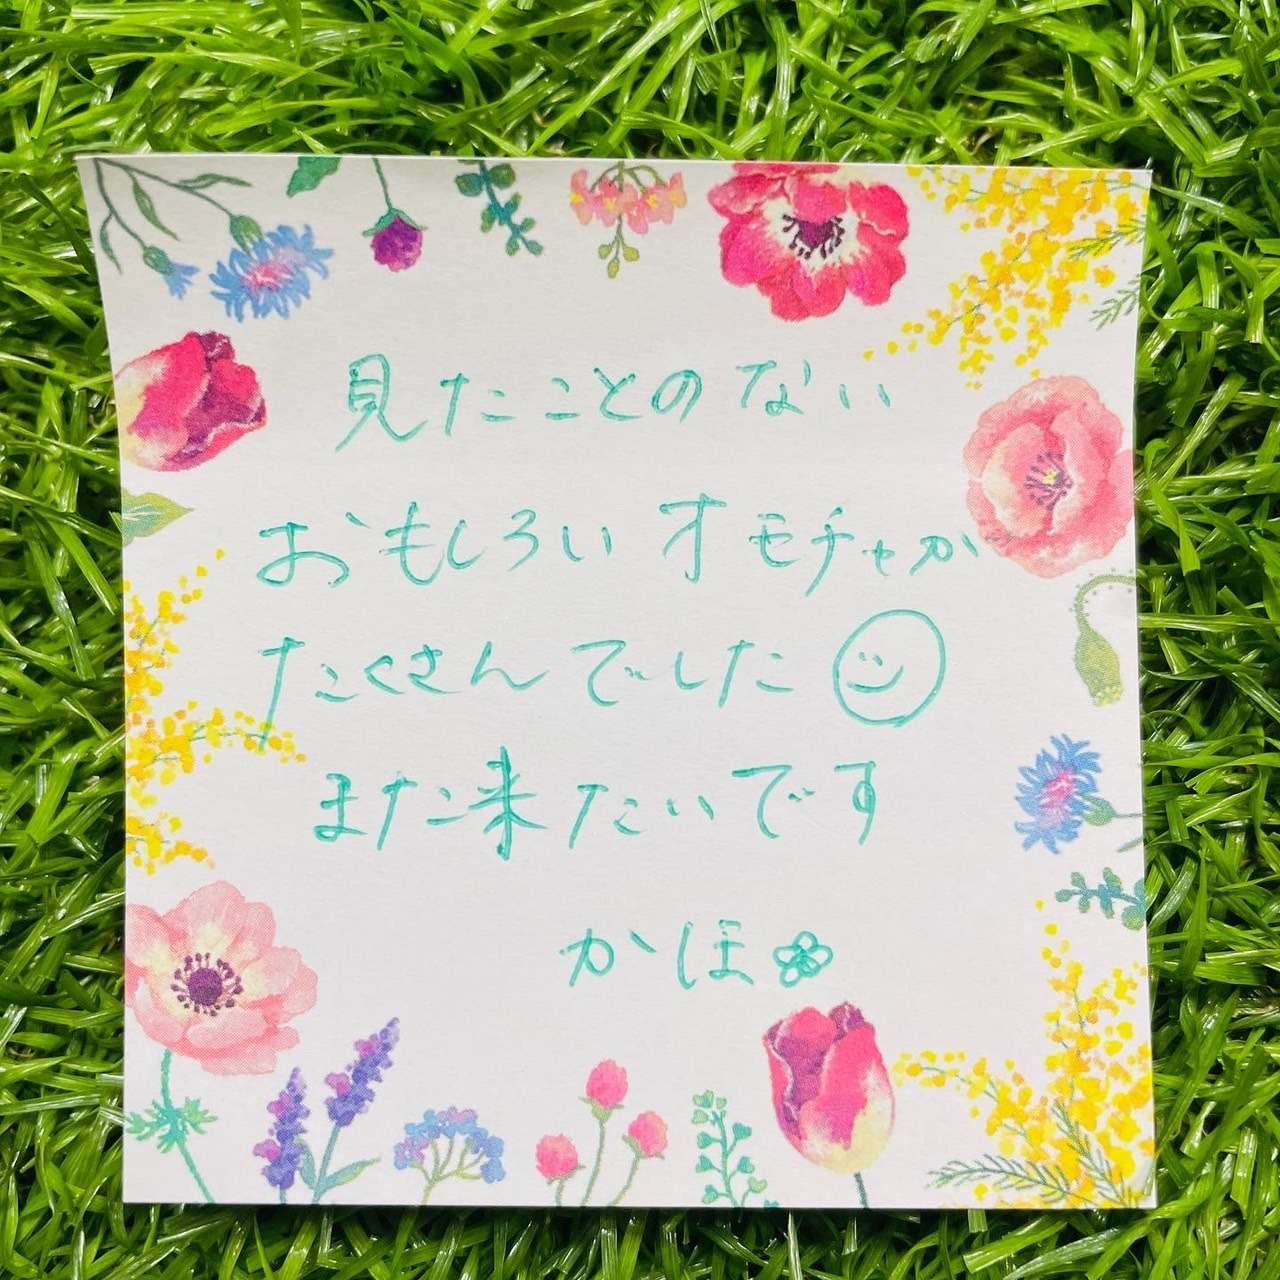 見たことのない
おもしろいオモチャが
たくさんでした
また来たいです
かほ